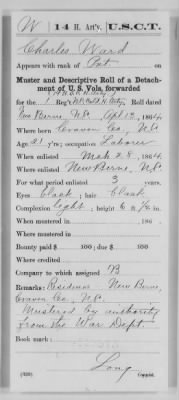 W 14 H. Art'y, U.S.C.T.
Charles Ward
Appears with rank of Pvt on
Muster and Descriptive Roll of a Detach-
ment of U. S. Vols. forwarded
for the 1 Reg't N.C. Cold. H. Art'y. Roll dated
New Berne, N.C., Apl 12, 1864.
Where born Craven Co., N.C.
Age 21 y'rs; occupation Laborer
When enlisted Mch 28, 1864.
Where enlisted New Berne, N.C.
For what period enlisted 3 years.
Eyes black; hair black
Complexion light; height 6 ft. in.
When mustered in , 186 .
Where mustered in
Bounty paid $ 100; due $ 100
Where credited
Company to which assigned B
Remarks: Residence New Berne,
Craven Co., N.C.
Mustered by authority
from the War Dept
Book mark:
Long
(339) Copyist.